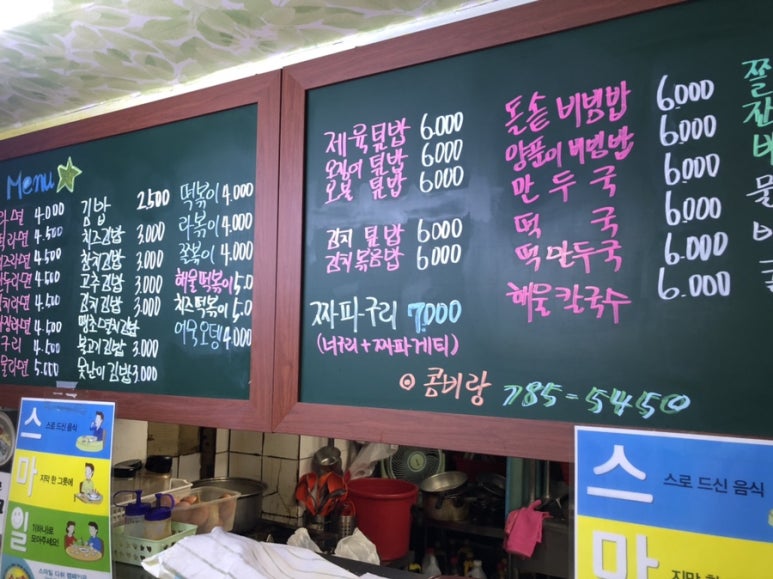 Menu
4.000
라면 4.500
즈라면 4.500
만두라면 4.500
김치라면 4.500
짜장라면 4.500
구리 4.500
물라면 5.000
김밥 2.500
치즈김밥 3.000
참치김밥 3.000
고추김밥 3.000
김치김밥 3.000
땡초멸치김밥
불고기김밥 3.000
못난이김밥 3.000
떡볶이 4.000
라볶이 4.000
쫄볶이 4.000
해물떡볶이 5.0
치즈떡볶이 5.0
어묵오뎅 4.000
제육 덮밥 6.000
오징어 덮밥 6.000
오불 덮밥 6.000
김치 덮밥 6.000
김치볶음밥 6.000
짜파구리 7.000
(너구리 + 짜파게티)
콩비랑 785-5450
돌솥 비빔밥 6.000
양푼이 비빔밥 6.000
만두국 6.000
떡국 6.000
떡만두국 6.000
해물칼국수 6.000
쫄
비
물
비
스
스로 드신 음식
마
지막 한 그릇에
일
1(하나)로
모아주세요!
스
스로 드신 음식
마
지막 한